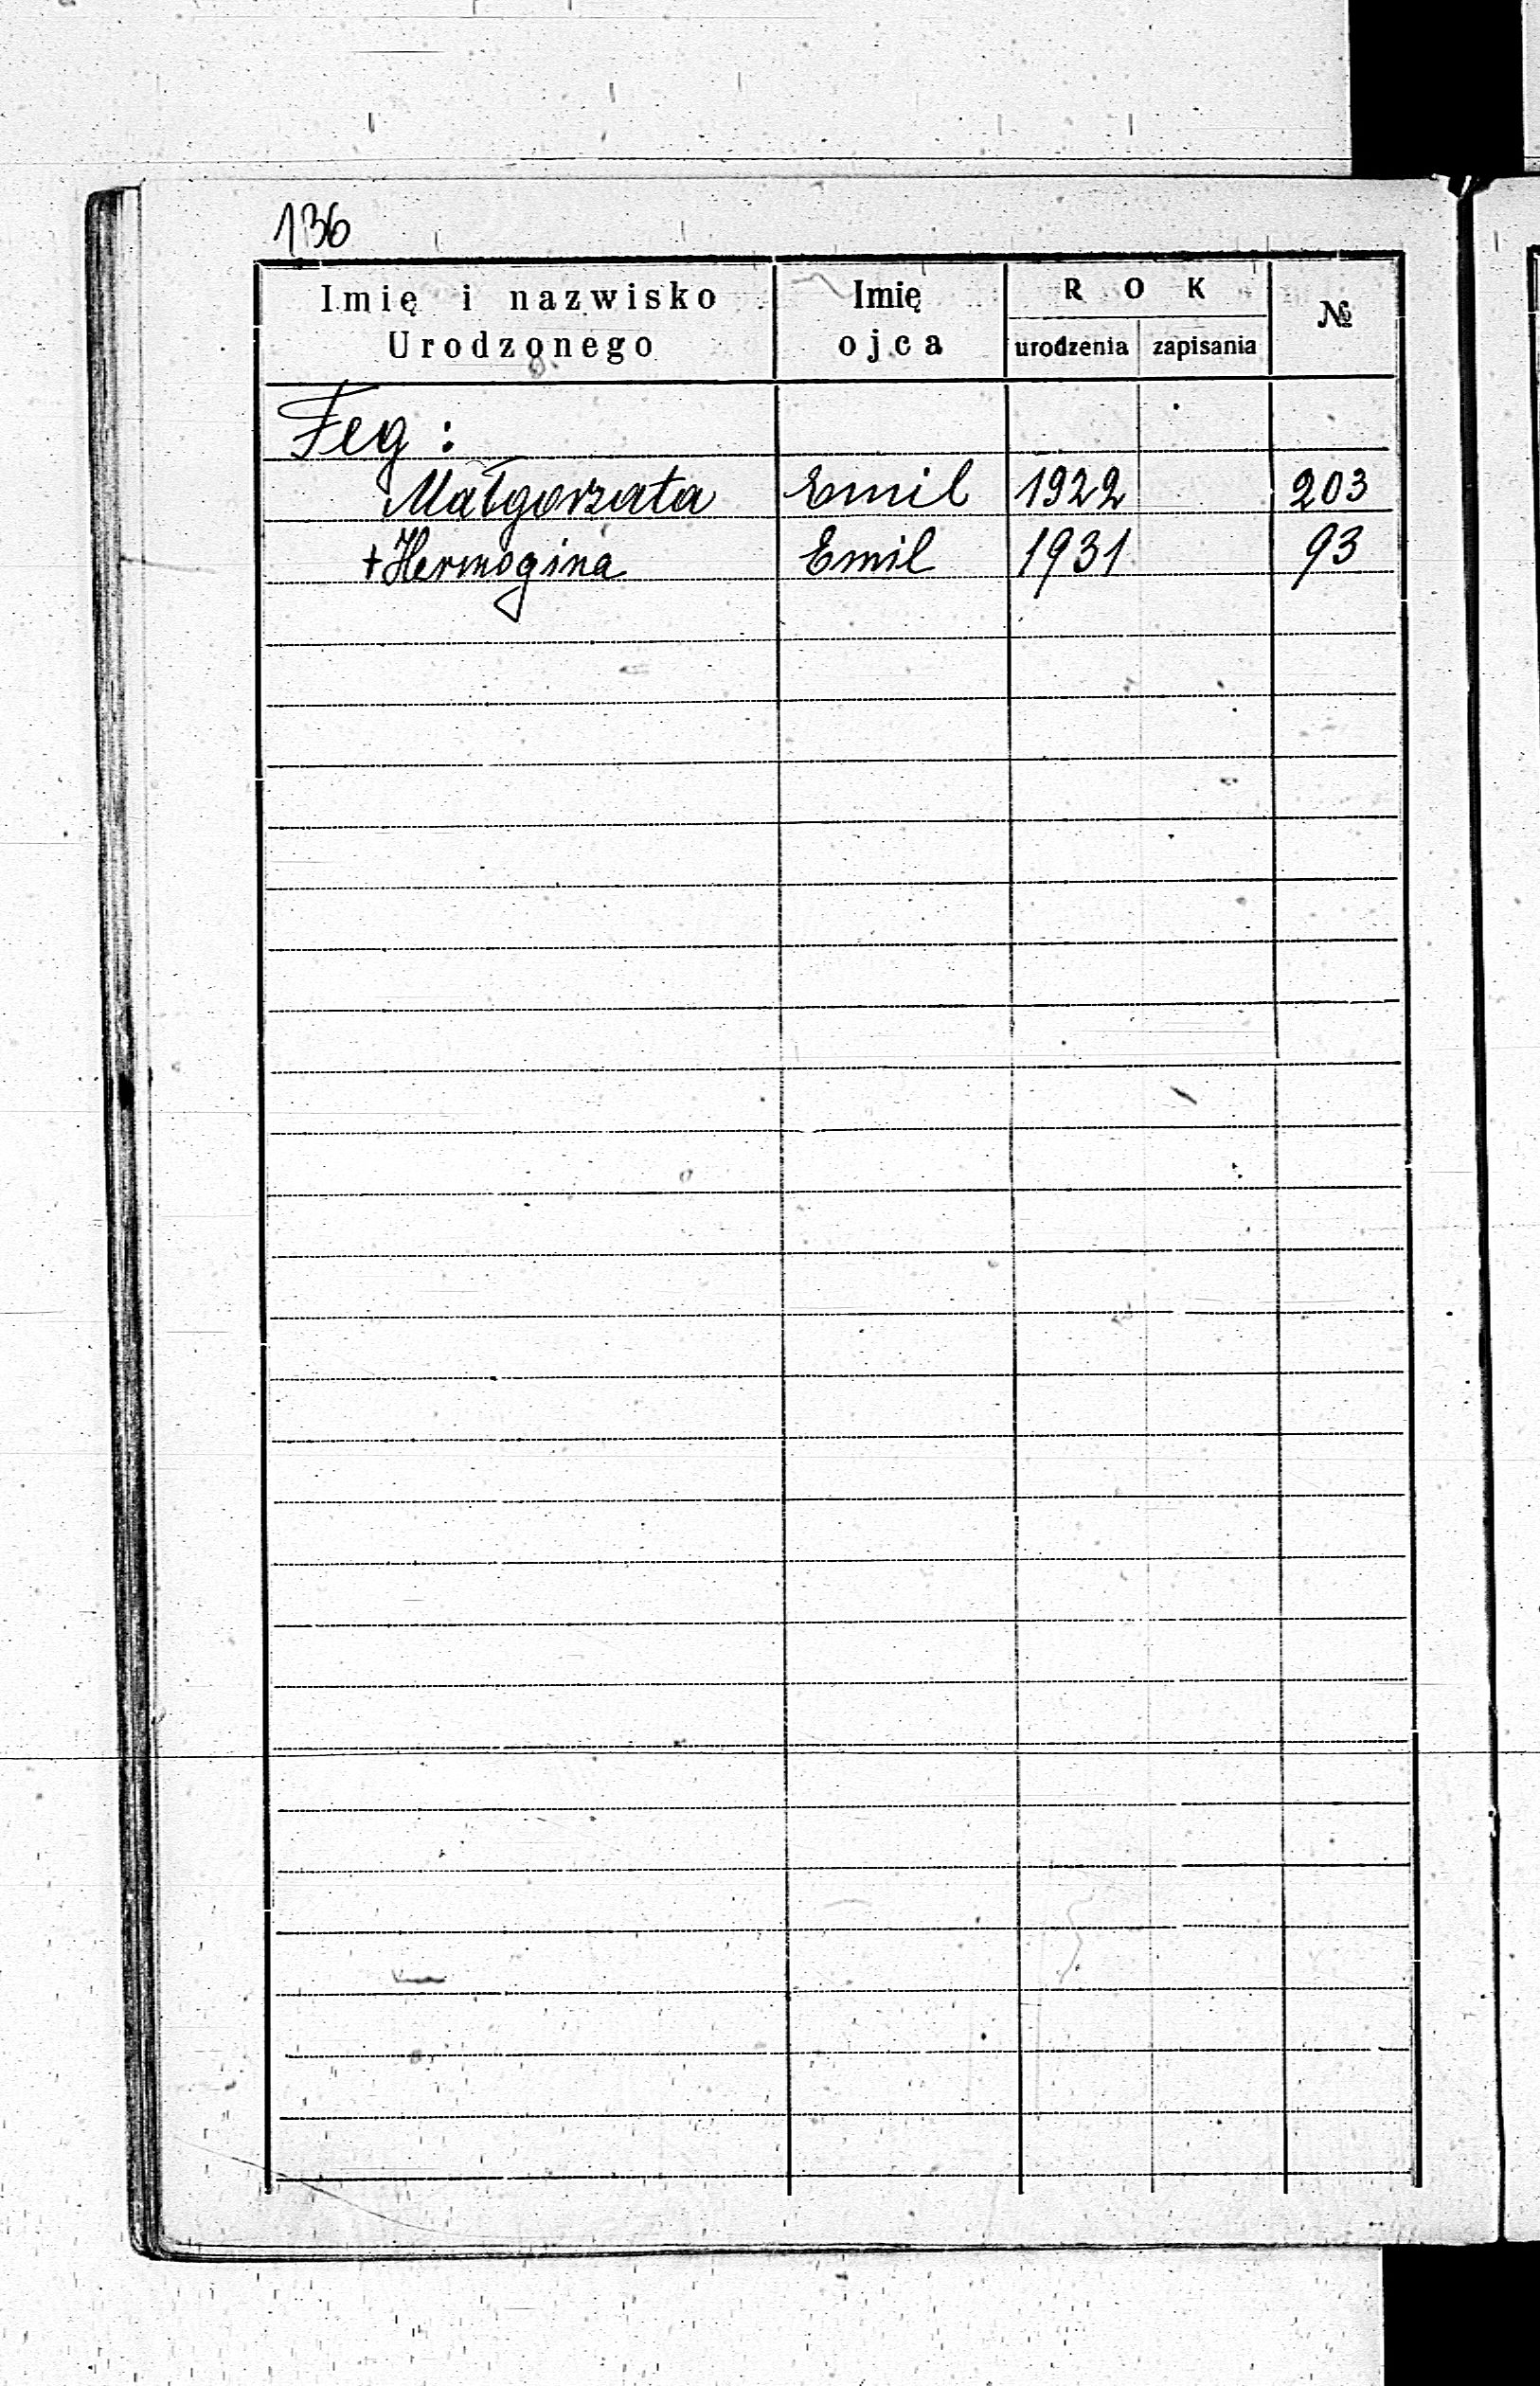 136
Imię i nazwisko Urodzonego | Imię ojca | ROK urodzenia | ROK zapisania | №
Feg :
Małgorzata | Emil | 1922 | | 203
+ Hermogina | Emil | 1931 | | 93